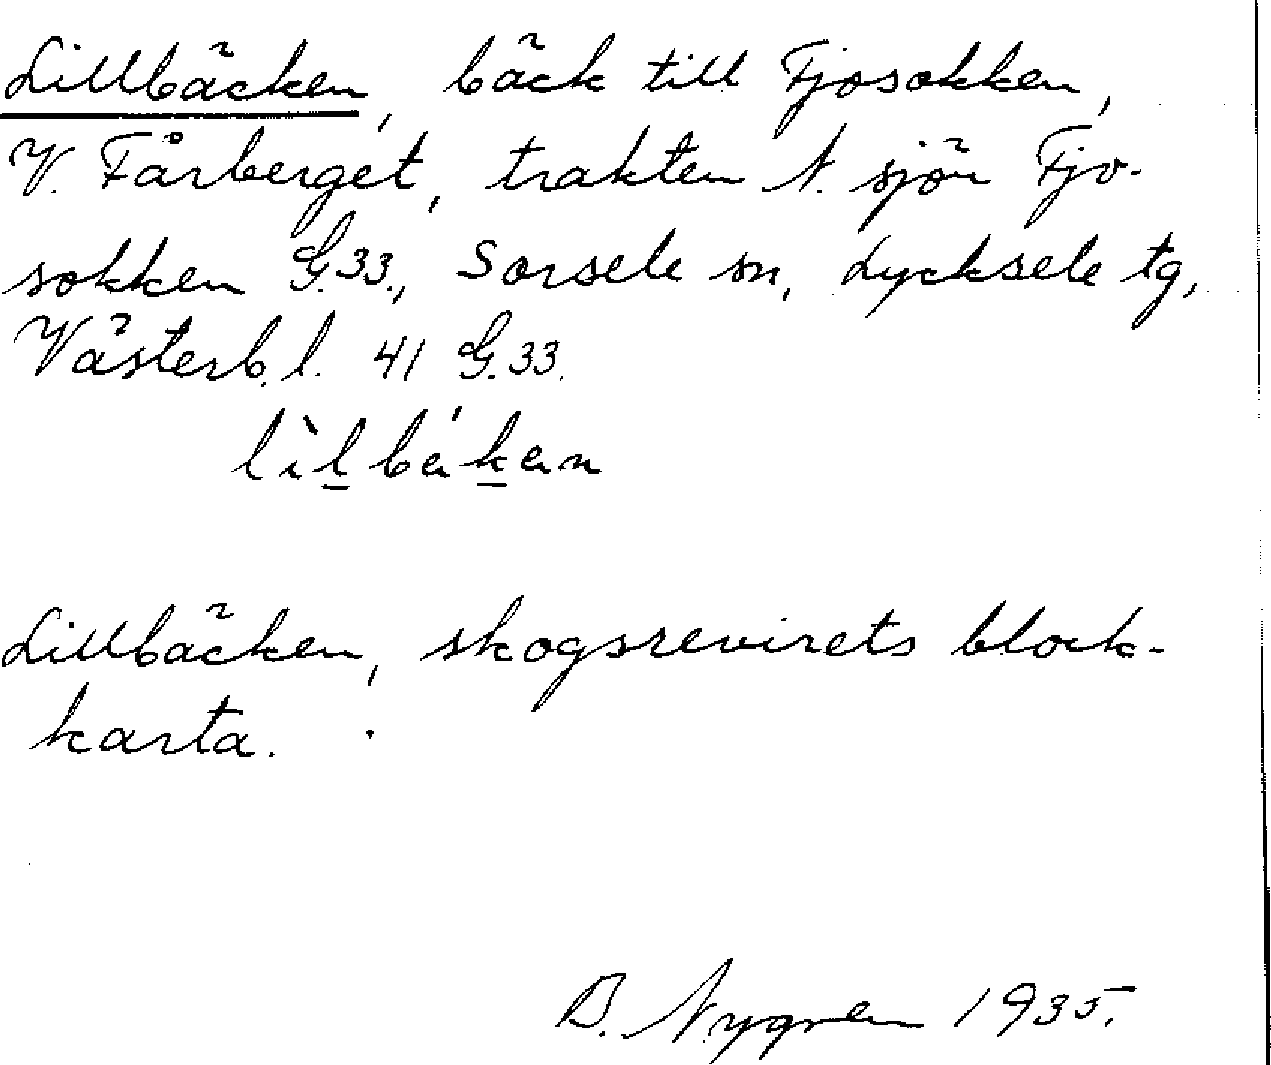 Lillbäcken, bäck till Fjosokken,
V. Fårberget, trakten N. sjön Fjo-
sokken G.33., Sorsele sn, Lycksele tg,
Västerb. l. 41 G.33.
lìlbäkan
Lillbäcken, skogsrevirets block-
karta.
B. Nygren 1935.